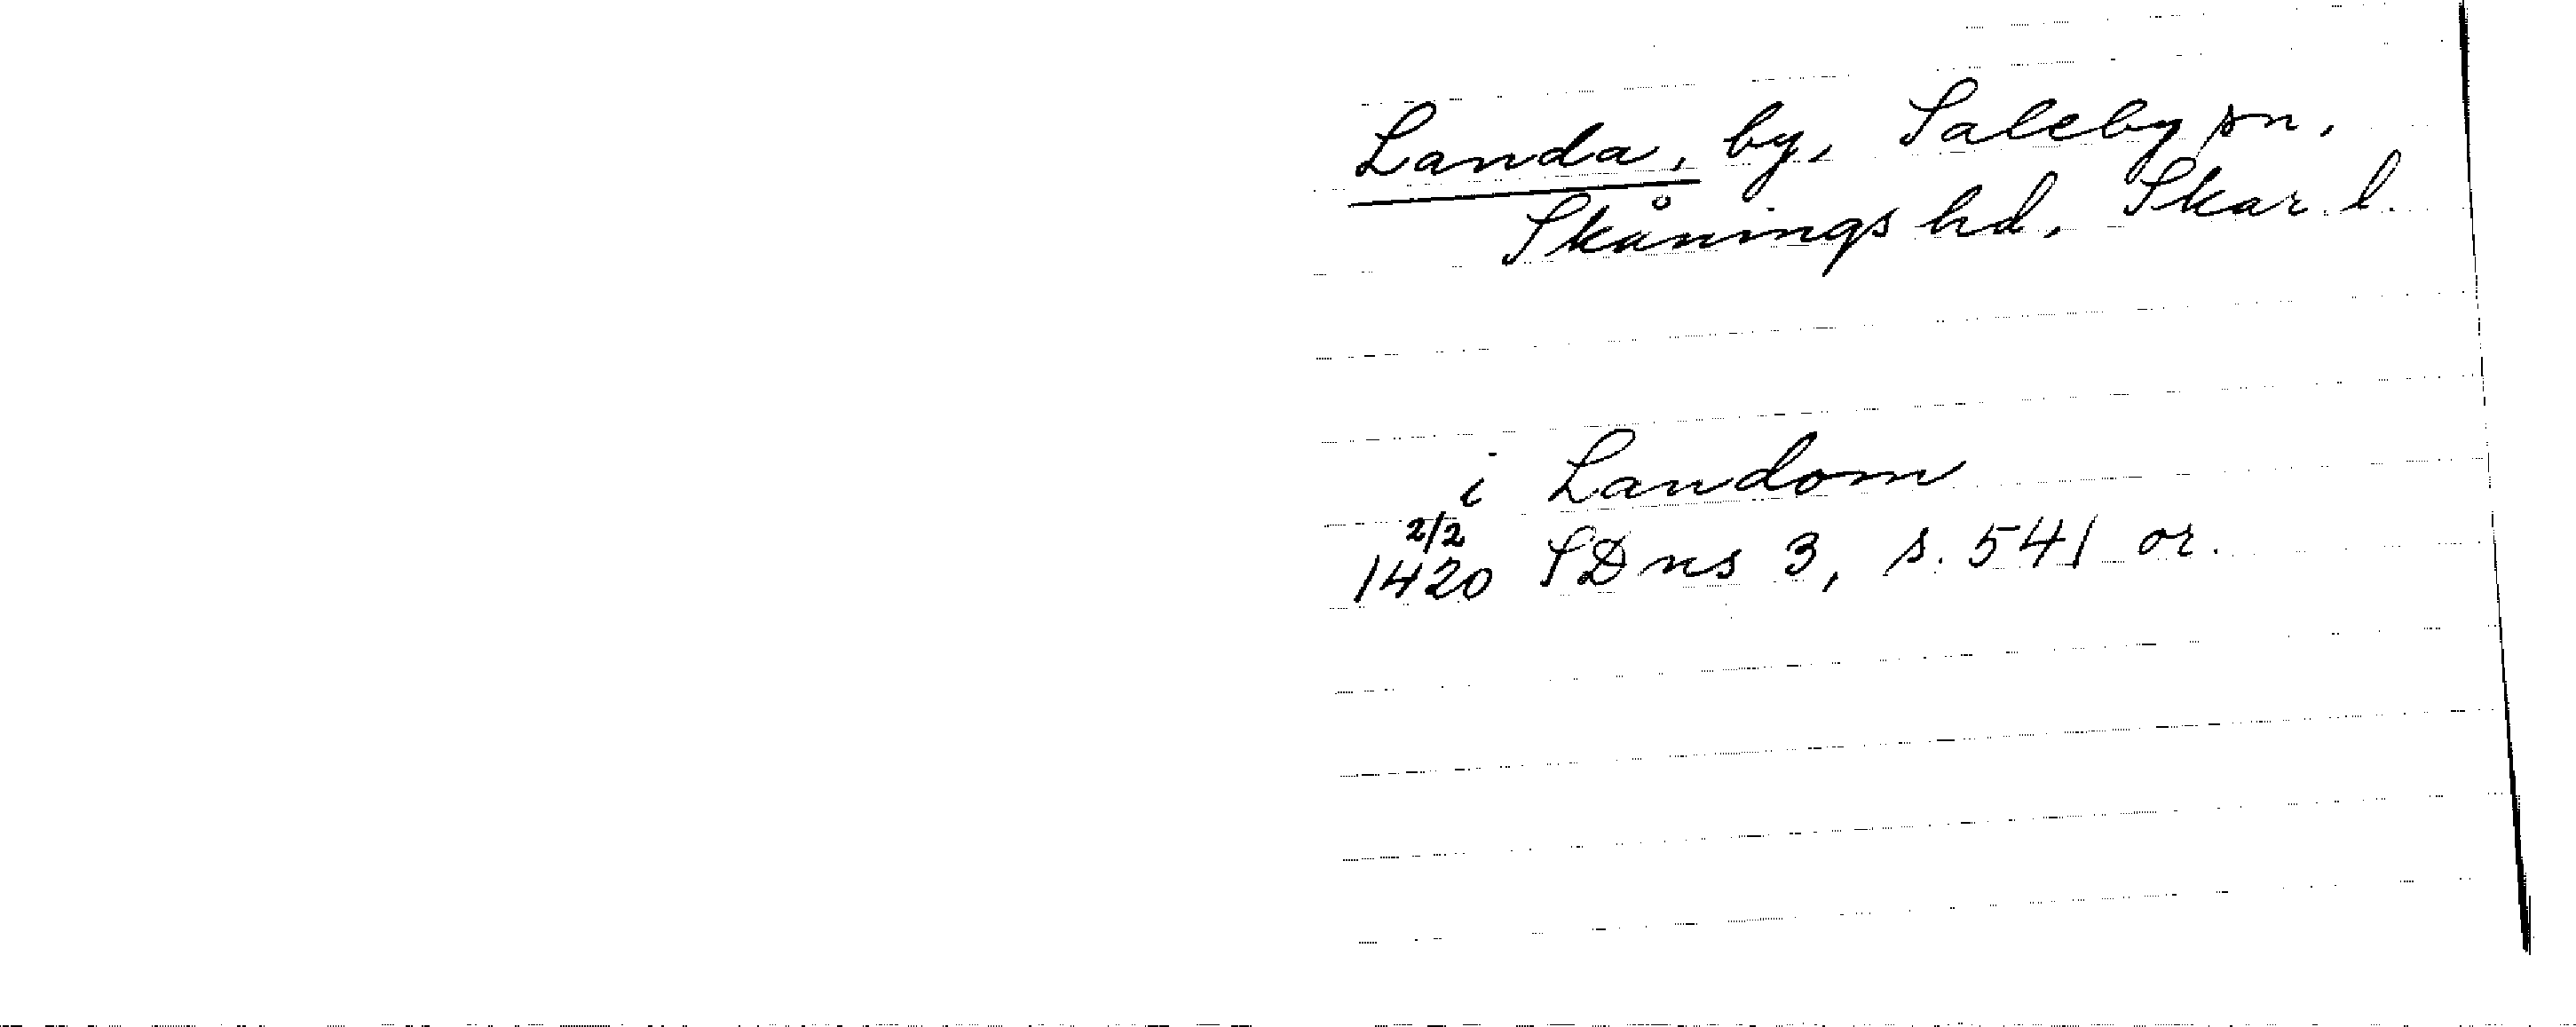 Landa, by, Saleby sn,
Skånings hd, Skar. l.
i Landom
2/2
1420 SD ns 3, s. 541 or.